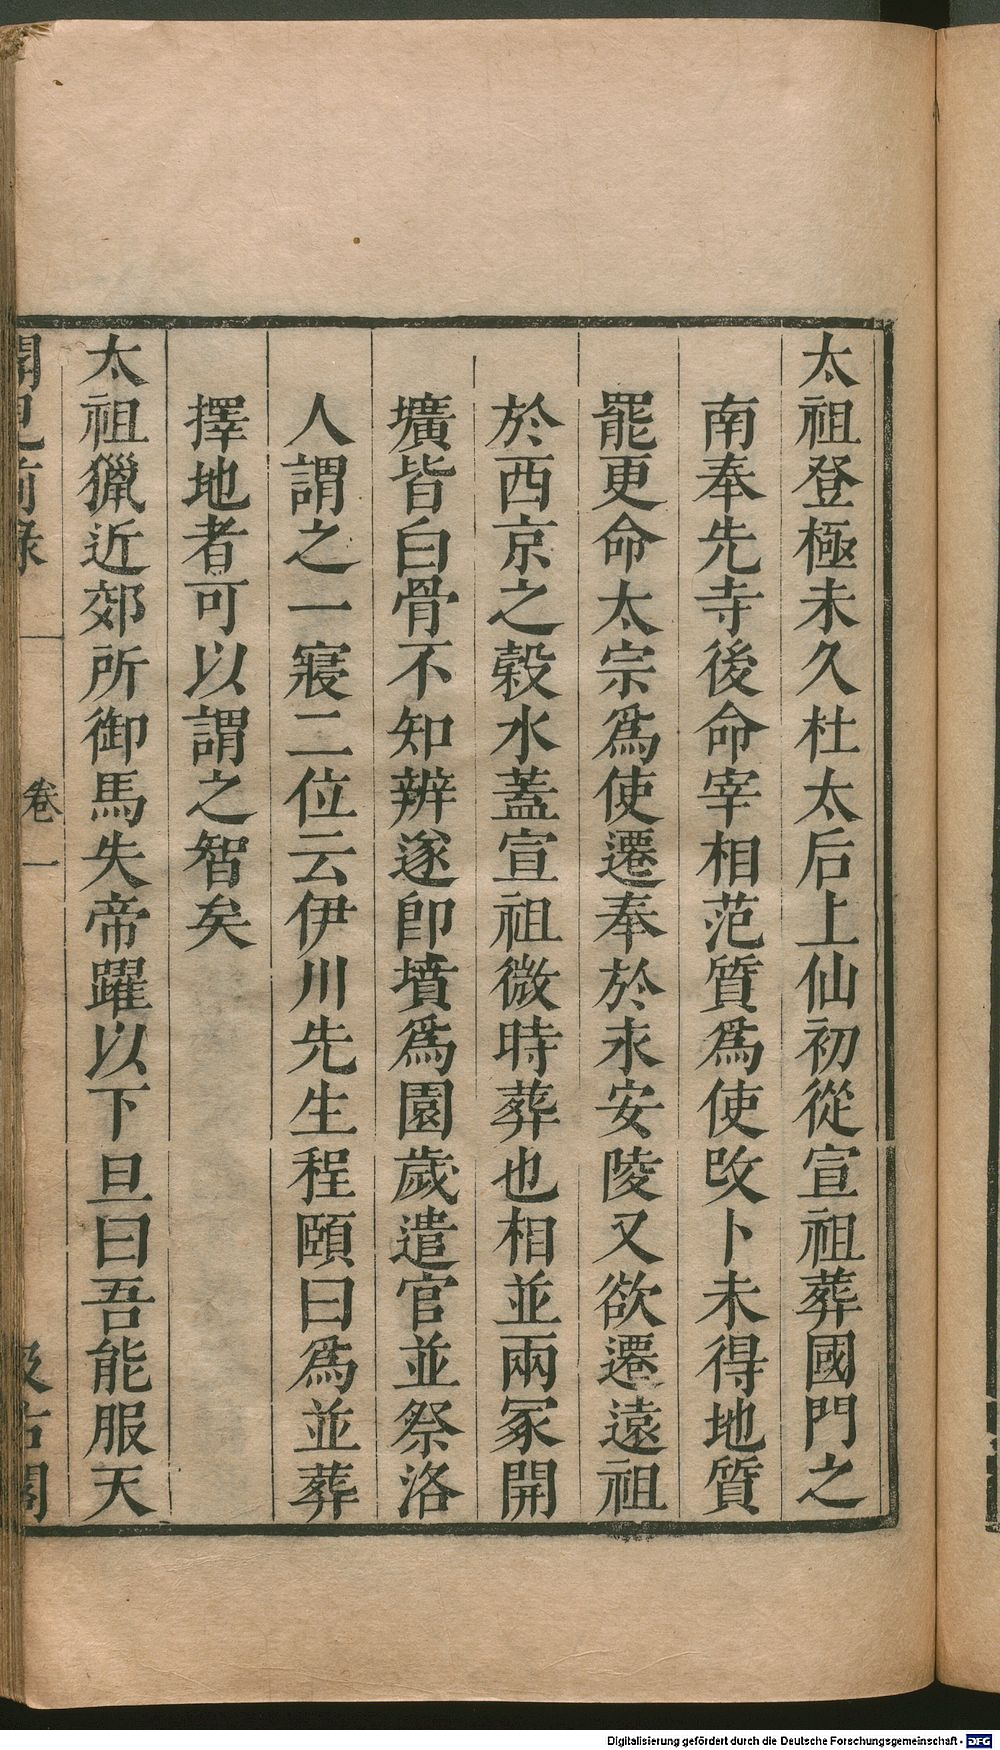 太祖登極未久杜太后上仙初從宣祖葬國門之
南奉先寺後命宰相范質爲使改卜未得地質
罷更命太宗爲使遷奉於永安陵又欲遷遠祖
於西京之榖水蓋宣祖微時葬也相並兩冢開
壙皆白骨不知辨遂卽墳爲園歲遣官並祭洛
人謂之一寢二位云伊川先生程頤曰爲並葬
擇地者可以謂之智矣
太祖獵近郊所御馬失帝躍以下且曰吾能服天
聞見前錄 卷一 汲古閣
Digitalisierung gefördert durch die Deutsche Forschungsgemeinschaft - DFG